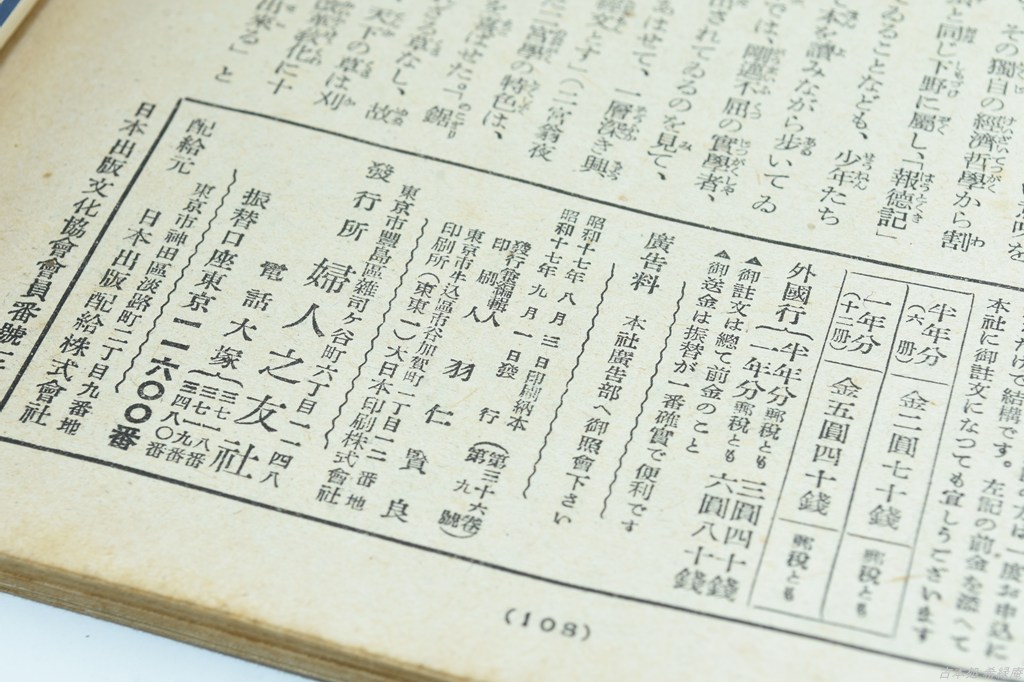 その獨自の經濟哲學から割
と同じ下野に屬し、「報德記」
ゐることなども、少年たち
本を讀みながら步いてゐ
では、剛邁不屈の實學者、
出されてゐるのを見て、
あはせて、一層深き興
經文とす」（二宮翁夜
た二宮翠の特色は、
故
天下の草は刈
出來る」と
だけで結構です。
本社に御註文になつても宜しうございます
左記の前金を添へて
半年分（六冊）
金二圓七十錢
郵稅とも
一年分（十二冊）
金五圓四十錢
郵稅とも
外國行（半年分郵稅とも 三圓四十錢
一年分郵稅とも 六圓八十錢
▲御註文は總て前金のこと
▲御送金は振替が一番確實で便利です
廣告料 本社廣告部へ御照會下さい
昭和十七年八月三日印刷納本
昭和十七年九月一日發行（第三十六卷第九號）
發行兼編輯人
印刷人 羽仁賢良
東京市牛込區市谷加賀町一丁目一二番地
印刷所（東東一）大日本印刷株式會社
東京市豐島區雜司ケ谷町六丁目一一四八
發行所 婦人之友社
電話大塚（三七一八番
三七一九番
三四八〇番
振替口座東京一一六〇〇番
東京市神田區淡路町二丁目九番地
配給元 日本出版配給株式會社
日本出版文化協會會員番號
(108)